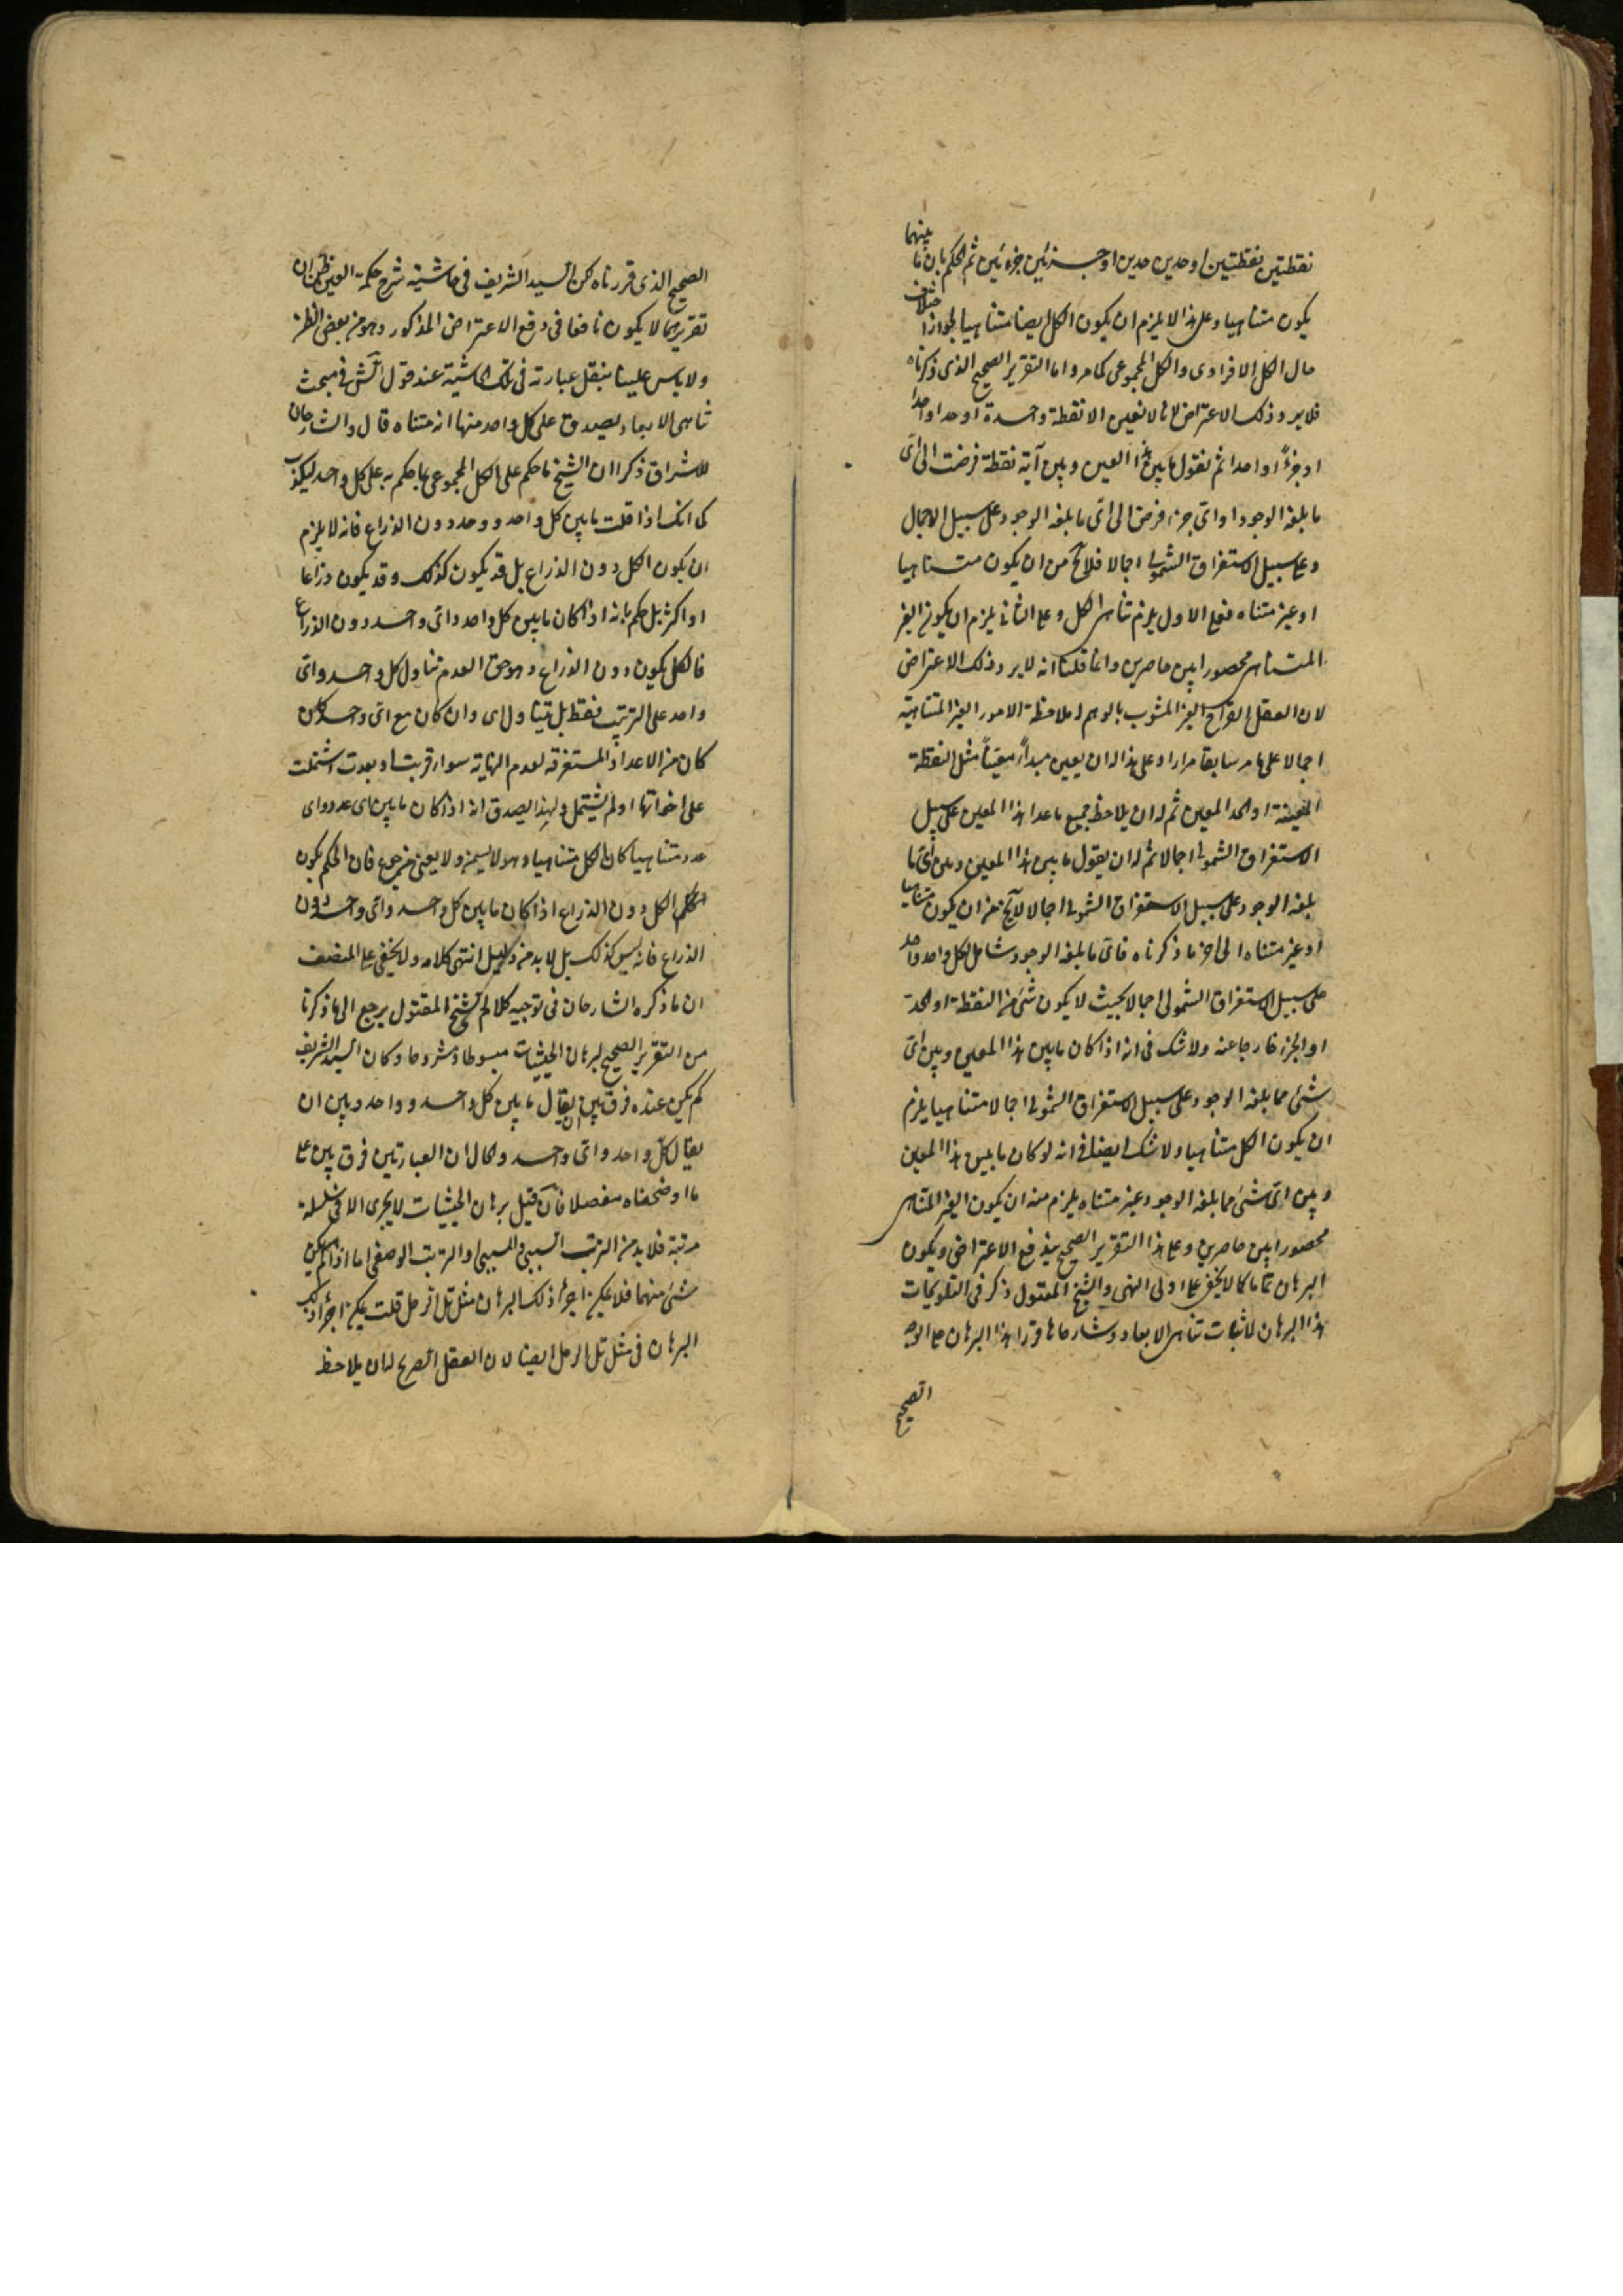 نقطتين نقطتين او حدين حدين او جزئين جزءئين ثم الحكم بان ما بينهما
يكون متناهيا وعلى هذا لا يلزم ان يكون الكل ايضا متناهيا لجواز اختلاف
حال الكل الافرادى والكل المجموعى كما مر واما التقرير الصحيح الذى ذكرناه
فلا يرد ذلك الاعتراض لانا لا نعين الا نقطة واحدة او حدا واحدا
او جزءاً واحدا ثم نقول ما بين هذا المعين وبين آية نقطة فرضت الى اى
ما بلغه الوجود او اى جزء فرض الى اى ما بلغه الوجود على سبيل الاجمال
وعلى سبيل الاستغراق الشمولى اجمالا فلا يخ من ان يكون متناهيا
او غير متناه فعلى الاول يلزم تناهى الكل وعلى الثانى يلزم ان يكون الغير
المتناهى محصورا بين حاصرين وانما قلنا انه لا يرد ذلك الاعتراض
لان العقل القراح الغير المشوب بالوهم له ملاحظة الامور الغير المتناهية
اجمالا على ما مر سابقا مرارا وعلى هذا له ان يعين مبدأً معيناً مثل النقطة
المعينة او الحد المعين ثم له ان يلاحظ جميع ما عدا هذا المعين على سبيل
الاستغراق الشمولى اجمالا ثم له ان يقول ما بين هذا المعين وبين اى ما
بلغه الوجود على سبيل الاستغراق الشمولى اجمالا لا يخ من ان يكون متناهيا
او غير متناه الى اخر ما ذكرناه فاى ما بلغه الوجود شامل لكل واحد واحد
على سبيل الاستغراق الشمولى اجمالا بحيث لا يكون شئ من النقطة او الحد
او الجزء خارجا عنه ولا شك فى انه اذا كان ما بين هذا المعين وبين اى
شئ مما بلغه الوجود على سبيل الاستغراق الشمولى اجمالا متناهيا يلزم
ان يكون الكل متناهيا ولا شك ايضا فى انه لو كان ما بين هذا المعين
وبين اى شئ مما بلغه الوجود غير متناه يلزم منه ان يكون الغير المتناهى
محصورا بين حاصرين وعلى هذا التقرير الصحيح يندفع الاعتراض ويكون
البرهان تماما كما لا يخفى على اولى النهى والشيخ المقتول ذكر فى التلويحات
هذا البرهان لاثبات تناهى الابعاد وشارحاها قررا هذا البرهان على الوجه
الصحيح
الصحيح الذى قررناه لكن السيد الشريف فى حاشية شرح حكمة العين ظن ان
تقريرهما لا يكون نافعا فى دفع الاعتراض المذكور وهو من بعض الظن
ولا باس علينا بنقل عبارته فى تلك الحاشية عند قول الش فى مبحث
تناهى الابعاد يصدق على كل واحد منها انه متناه قال والشارحان
للاشراق ذكرا ان الشيخ ما حكم على الكل المجموعى بما حكم به على كل واحد ليكذب
كما انك اذا قلت ما بين كل واحد وواحد دون الذراع فانه لا يلزم
ان يكون الكل دون الذراع بل قد يكون كذلك وقد يكون ذراعا
او اكثر بل حكم بانه اذا كان ما بين كل واحد واى واحد دون الذراع
فالكل يكون دون الذراع وهو حق لعدم تناول كل واحد واى
واحد على الترتيب فقط بل يتناول اى وان كان مع اى واحد كان
كان من الاعداد المستغرقة لعدم النهاية سواء قربت او بعدت اشتملت
على اخواتها او لم يشتمل ولهذا يصدق انه اذا كان ما بين اى عدد واى
عدد متناهيا كان الكل متناهيا وهو لا يسمن ولا يغنى من جوع فان الحكم بكون
الكل دون الذراع اذا كان ما بين كل واحد واى واحد دون
الذراع فانه ليس كذلك بل لا بد من دليل انتهى كلامه ولا يخفى على المنصف
ان ما ذكره الشارحان فى توجيه كلام الشيخ المقتول يرجع الى ما ذكرنا
من التقرير الصحيح لبرهان الحيثيات مبسوطا ومشروحا وكان السيد الشريف
لم يكن عنده فرق بين ان يقال ما بين كل واحد وواحد وبين ان
يقال كل واحد واى واحد والحال ان العبارتين فرق بين على
ما اوضحناه مفصلا فان قيل برهان الحيثيات لا يجرى الا فى سلسلة
مرتبة فلا بد من الترتب السببى والمسببى او الترتب الوضعى اما اذا لم يكن
شئ منهما فلا يمكن اجراء ذلك البرهان مثل تل الرمل قلت يمكن اجراء ذلك
البرهان فى مثل تل الرمل ايضا لان العقل الصريح له ان يلاحظ